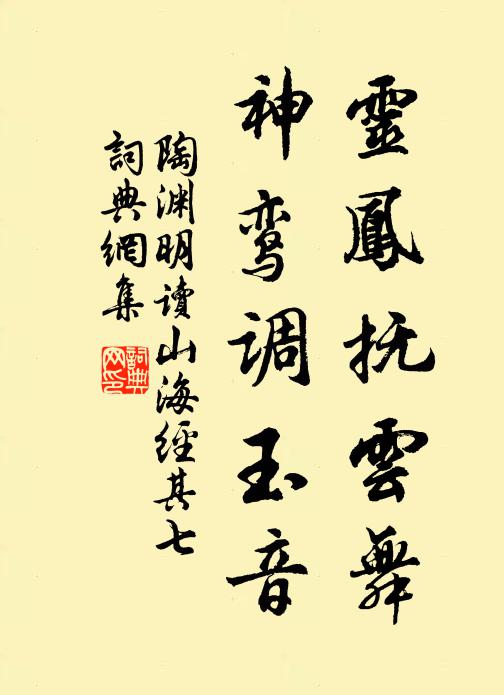 靈鳳抚雲舞
神鸾调玉音
陶渊明读山海經其七
詞典網集
詞典网印